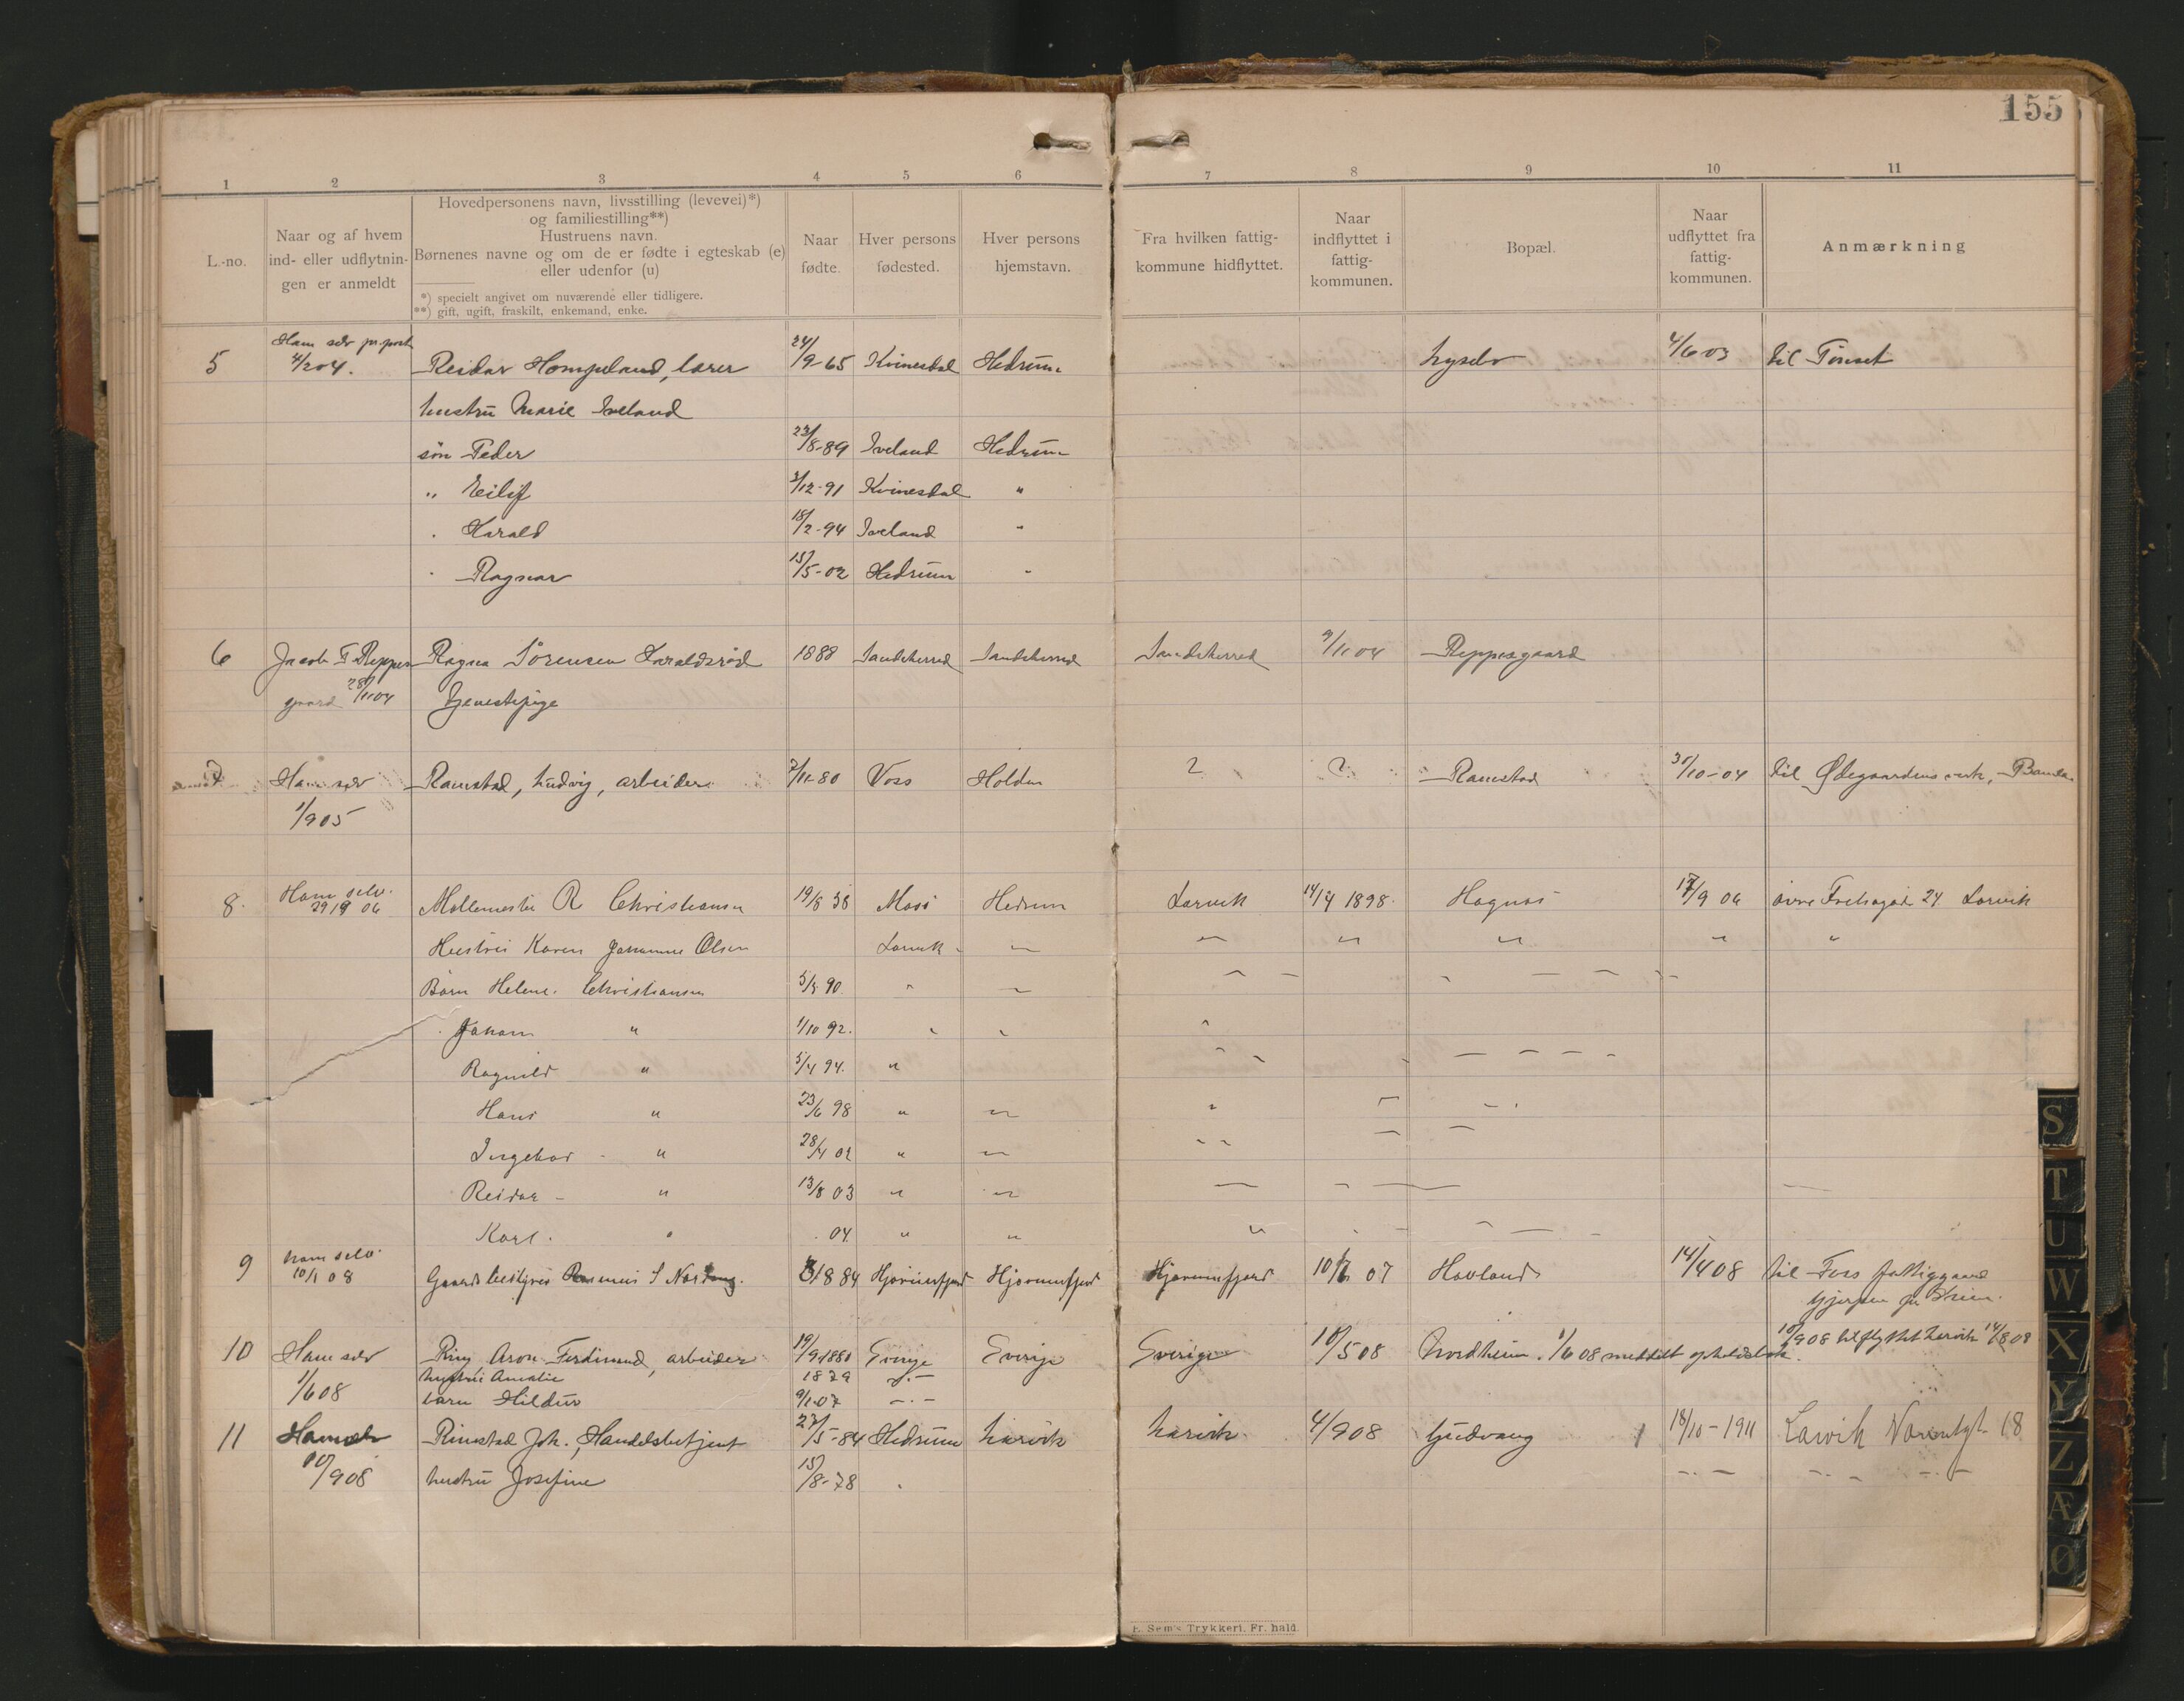 155
1 2 3 4 5 6 7 8 9 10 11
L.-no.
Naar og af hvem
ind- eller udflytnin-
gen er anmeldt
Hovedpersonens navn, livsstilling (levevei)*)
og familiestilling**)
Hustruens navn.
Børnenes navne og om de er fødte i egteskab (e)
eller udenfor (u)
*) specielt angivet om nuværende eller tidligere.
**) gift, ugift, fraskilt, enkemand, enke.
Naar
fødte.
Hver persons
fødested.
Hver persons
hjemstavn.
Fra hvilken fattig-
kommune hidflyttet.
Naar
indflyttet i
fattig-
kommunen.
Bopæl.
Naar
udflyttet fra
fattig-
kommunen.
Anmærkning
Ham selv pr. post
5 4/2 04. Reidar Hompeland, lærer 24/9-65 Kvinesdal Hedrum 4/6 03 til
hustru Marie Iveland
søn Peder 23/8-89 Iveland Hedrum
" Eilif /12-91 Kvinesdal "
" Harald 18/2-94 Iveland "
" Ragnar 15/5-02 Hedrum "
6 Jacob T. Reppes- Ragna Sørensen Haraldsrød 1888 Sandeherred Sandeherred Sandeherred 9/11 04 Reppesgaard
gaard 28/11 04 tjenestepige
7 Ham selv Ramstad, Ludvig, arbeider 7/11-80 Voss Holden ? ? Ramstad 31/10-04 til Ødegaardens verk, Bamle
1/9 05
8. Ham selv. 29/9 06 Møllemester R Christiansen 19/8 38 Moss Hedrum Larvik 14/4 1898. Hagnæs 17/9 06 øvre 24 Larvik
Hustru Karen Johanne Olsen Larvik " " " " " "
Børn Helene. Christiansen 5/8 90 " "
Johan " 1/10 92. " " "
Ragnild " 5/4 94. "
Hans " 23/6 98 " " "
Ingebor - " 28/4 02 " "
Reidar - " 13/8 03 " "
Karl. " 04. " " "
9 ham selv. 10/1 08 Gaardbestyrer Rasmus S 8 84 Hjørundfjord Hjørundfjord Hjørundfjord 07 Hovland 14/4 08 til Foss fattiggaard
Gjerpen pr Skien.
10 Ham selv Ring Aron Ferdinand, arbeider 19/9 1880 Sverige Sverige Sverige 18/5 08 Nordheim. 1/6 08 meddelt opholdsbok. 10/9 08 utflyttet Larvik 14/8 08
1/6 08 hustru Amalie 1879 "
barn Hildur 9/1-07 "
11 Ham selv Rimstad Joh., Handelsbetjent 27/5-84 Hedrum Larvik Larvik 4/9 08 Gudvang 18/10-1911 Larvik 18
10/9 08 hustru Josefine 15/8-78
E. Sem's Trykkeri, Fr.hald.
S
T
U
W
X
Y
Z
Æ
Ø